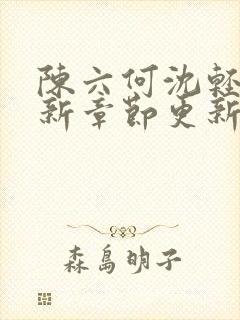 陳六何沈輕
新章節更新
森島明子